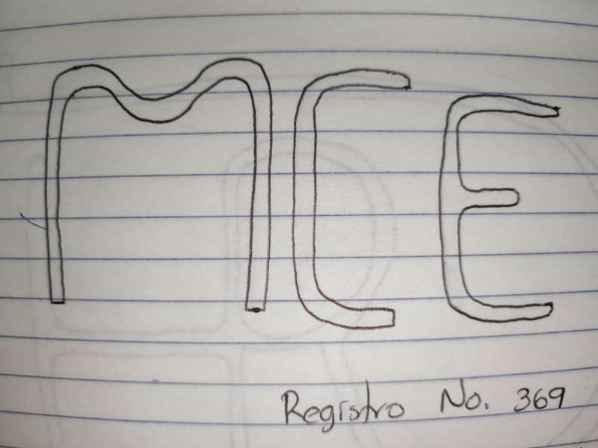 MCE
Registro No. 369